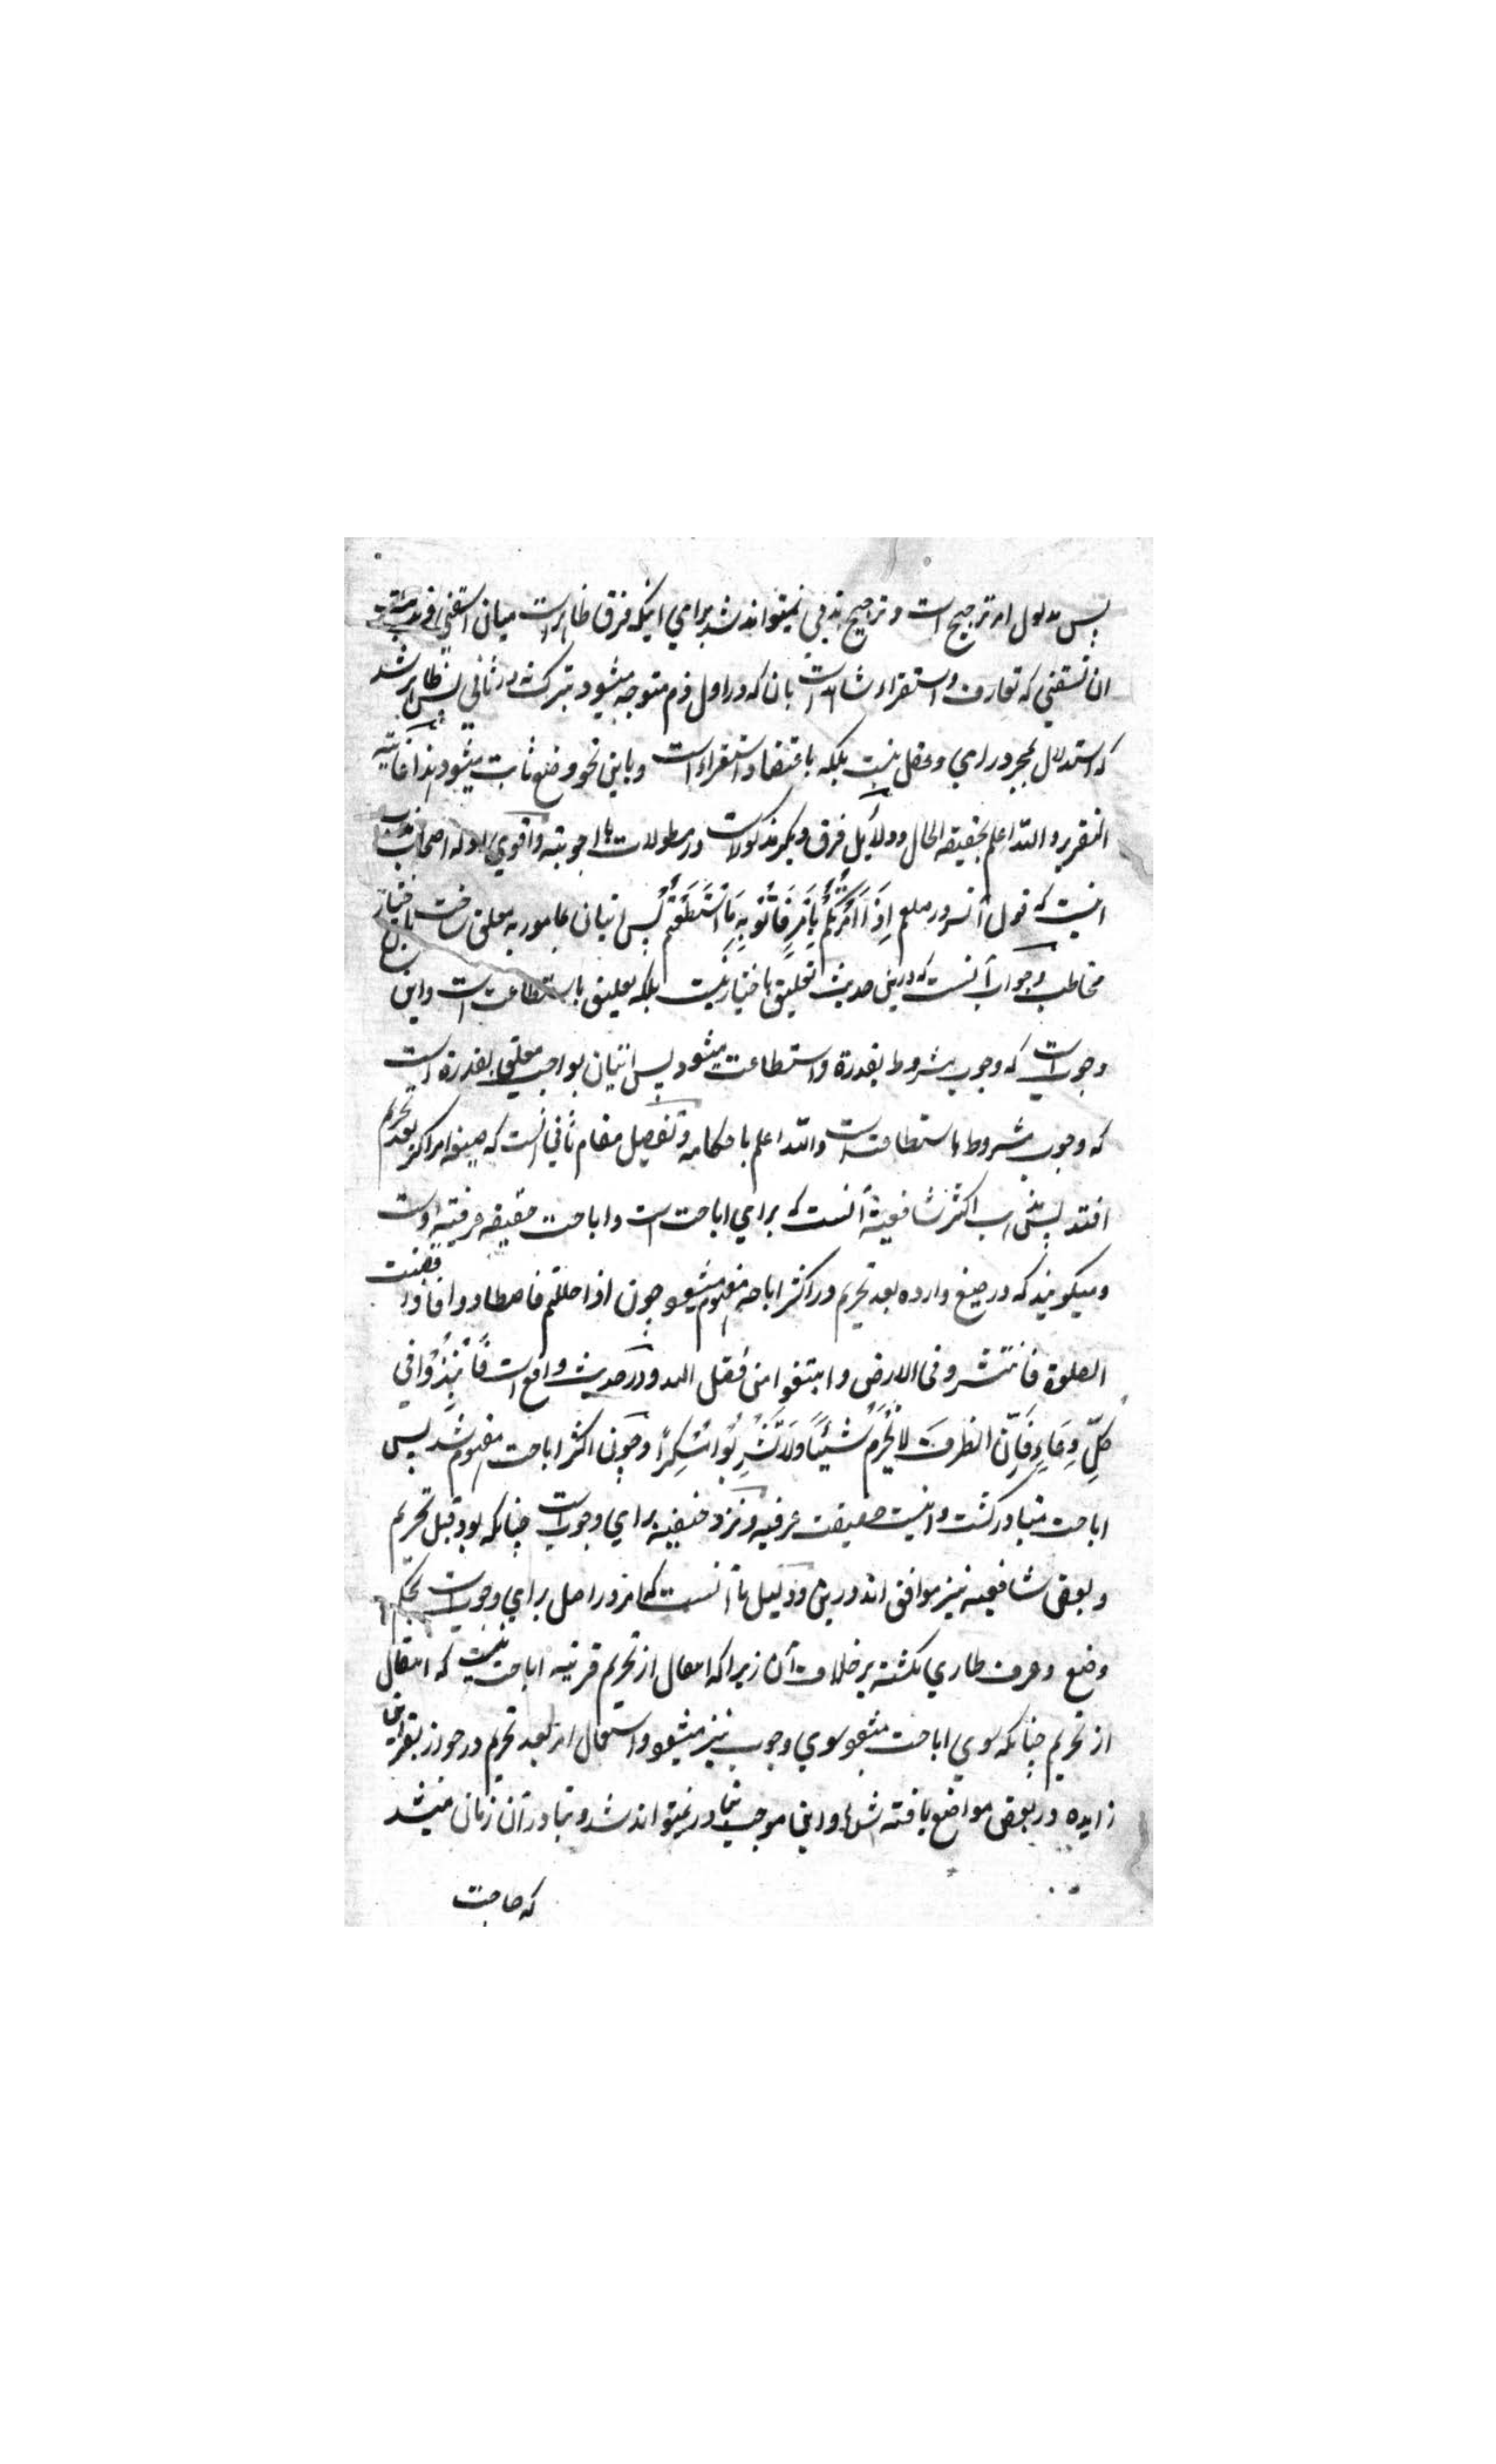 پس مدلول امر ترجیح است و ترجیح ندبی نمیتواند شد برای اینکه فرق ظاهر است میان اسقنی و ندبت
ان تسقینی که تعارف و استقراء شاهد است بان که در اول ذم متوجه میشود بترک نه در ثانی پس ظاهر شد
که استدلال بمجرد رای و عقل نیست بلکه باقتضاء استقراء است و باین نحو وضع ثابت میشود هذا غایته
التقریر والله اعلم بحقیقه الحال و دلایل فرق دیگر مذکور است در مطولات با اجوبته و اقوی ادله اصحاب ندب
اینست که قول آنسرور صلعم إِذَا أَمَرْتُكُمْ بِأَمْرٍ فَأْتُوْ بِهِ مَا اسْتَطَعْتُمْ پس اتیان بمامور به معلق ساخت باختیار
مخاطب و جواب آنست که درین حدیث تعلیق باختیار نیست بلکه تعلیق باستطاعت است و این
وجوب است که وجوب مشروط بقدرة و استطاعت میشود پس اتیان بواجب معلق بقدرة است
که وجوب مشروط باستطاعت است والله اعلم باحکامه و تفصیل مقام ثانی آنست که صیغه امر اکر بعد تحریم
افتد پس مذهب اکثر شافعیة آنست که برای اباحت است و اباحت حقیقه عرفیته اوست
و میکویند که در صیغ وارده بعد تحریم در اکثر اباحه مفهوم میشود چون اذا حللتم فاصطادوا فاذا قضیت
الصلوة فانتشرو فی الارض وابتغوا من فضل الله و در حدیث واقع است فَانْبِذُوْا فی
كُلِّ وِعَاءٍ فَاِنَّ الظرفَ لَا يُحَرِّمُ شَيْئًا وَلَا تَشْرَبُوْا مُسْكِرًا و چون اکثر اباحت مفهوم شد پس
اباحت متبادر کشت و اینست حقیقت عرفیه و نزد حنفیه برای وجوب است چنانکه بود قبل تحریم
و بعض شافعیه نیز موافق اند درین و دلیل ما آنست که امر در اصل برای وجوب است بحکم
وضع و عرف طاری نکشته بر خلاف آن زیرا که انتقال از تحریم قرینه اباحت نیست که انتقال
از تحریم چنانکه سوی اباحت میشود سوی وجوب نیز میشود و استعمال امر بعد تحریم در جواز بقراین
زایده در بعض مواضع یافته شد و این موجب تبادر نمیتواند شد و تبادر آن زمانی میشد
که حاجت